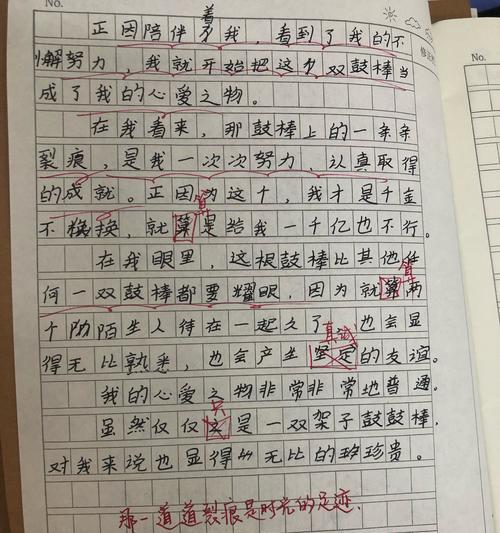 No.
正因陪伴着我，看到了我的不
懈努力，我就开始把这个双鼓棒当
成了我的心爱之物。
在我看来，那鼓棒上的一条条
裂痕，是我一次次努力，认真取得
的成就。正因为这个，我才是千金
不换，就算是给我一千亿也不行。
在我眼里，这根鼓棒比其他任
何一双鼓棒都要耀眼，因为就算两
个陌生人待在一起久了，也会显
得无比熟悉，也会产生坚定真诚的友谊。
我的心爱之物非常非常地普通。
虽然仅仅只是一双架子鼓鼓棒，
对我来说也显得无比的珍贵。
那一道道裂痕是时光的足迹.
No.